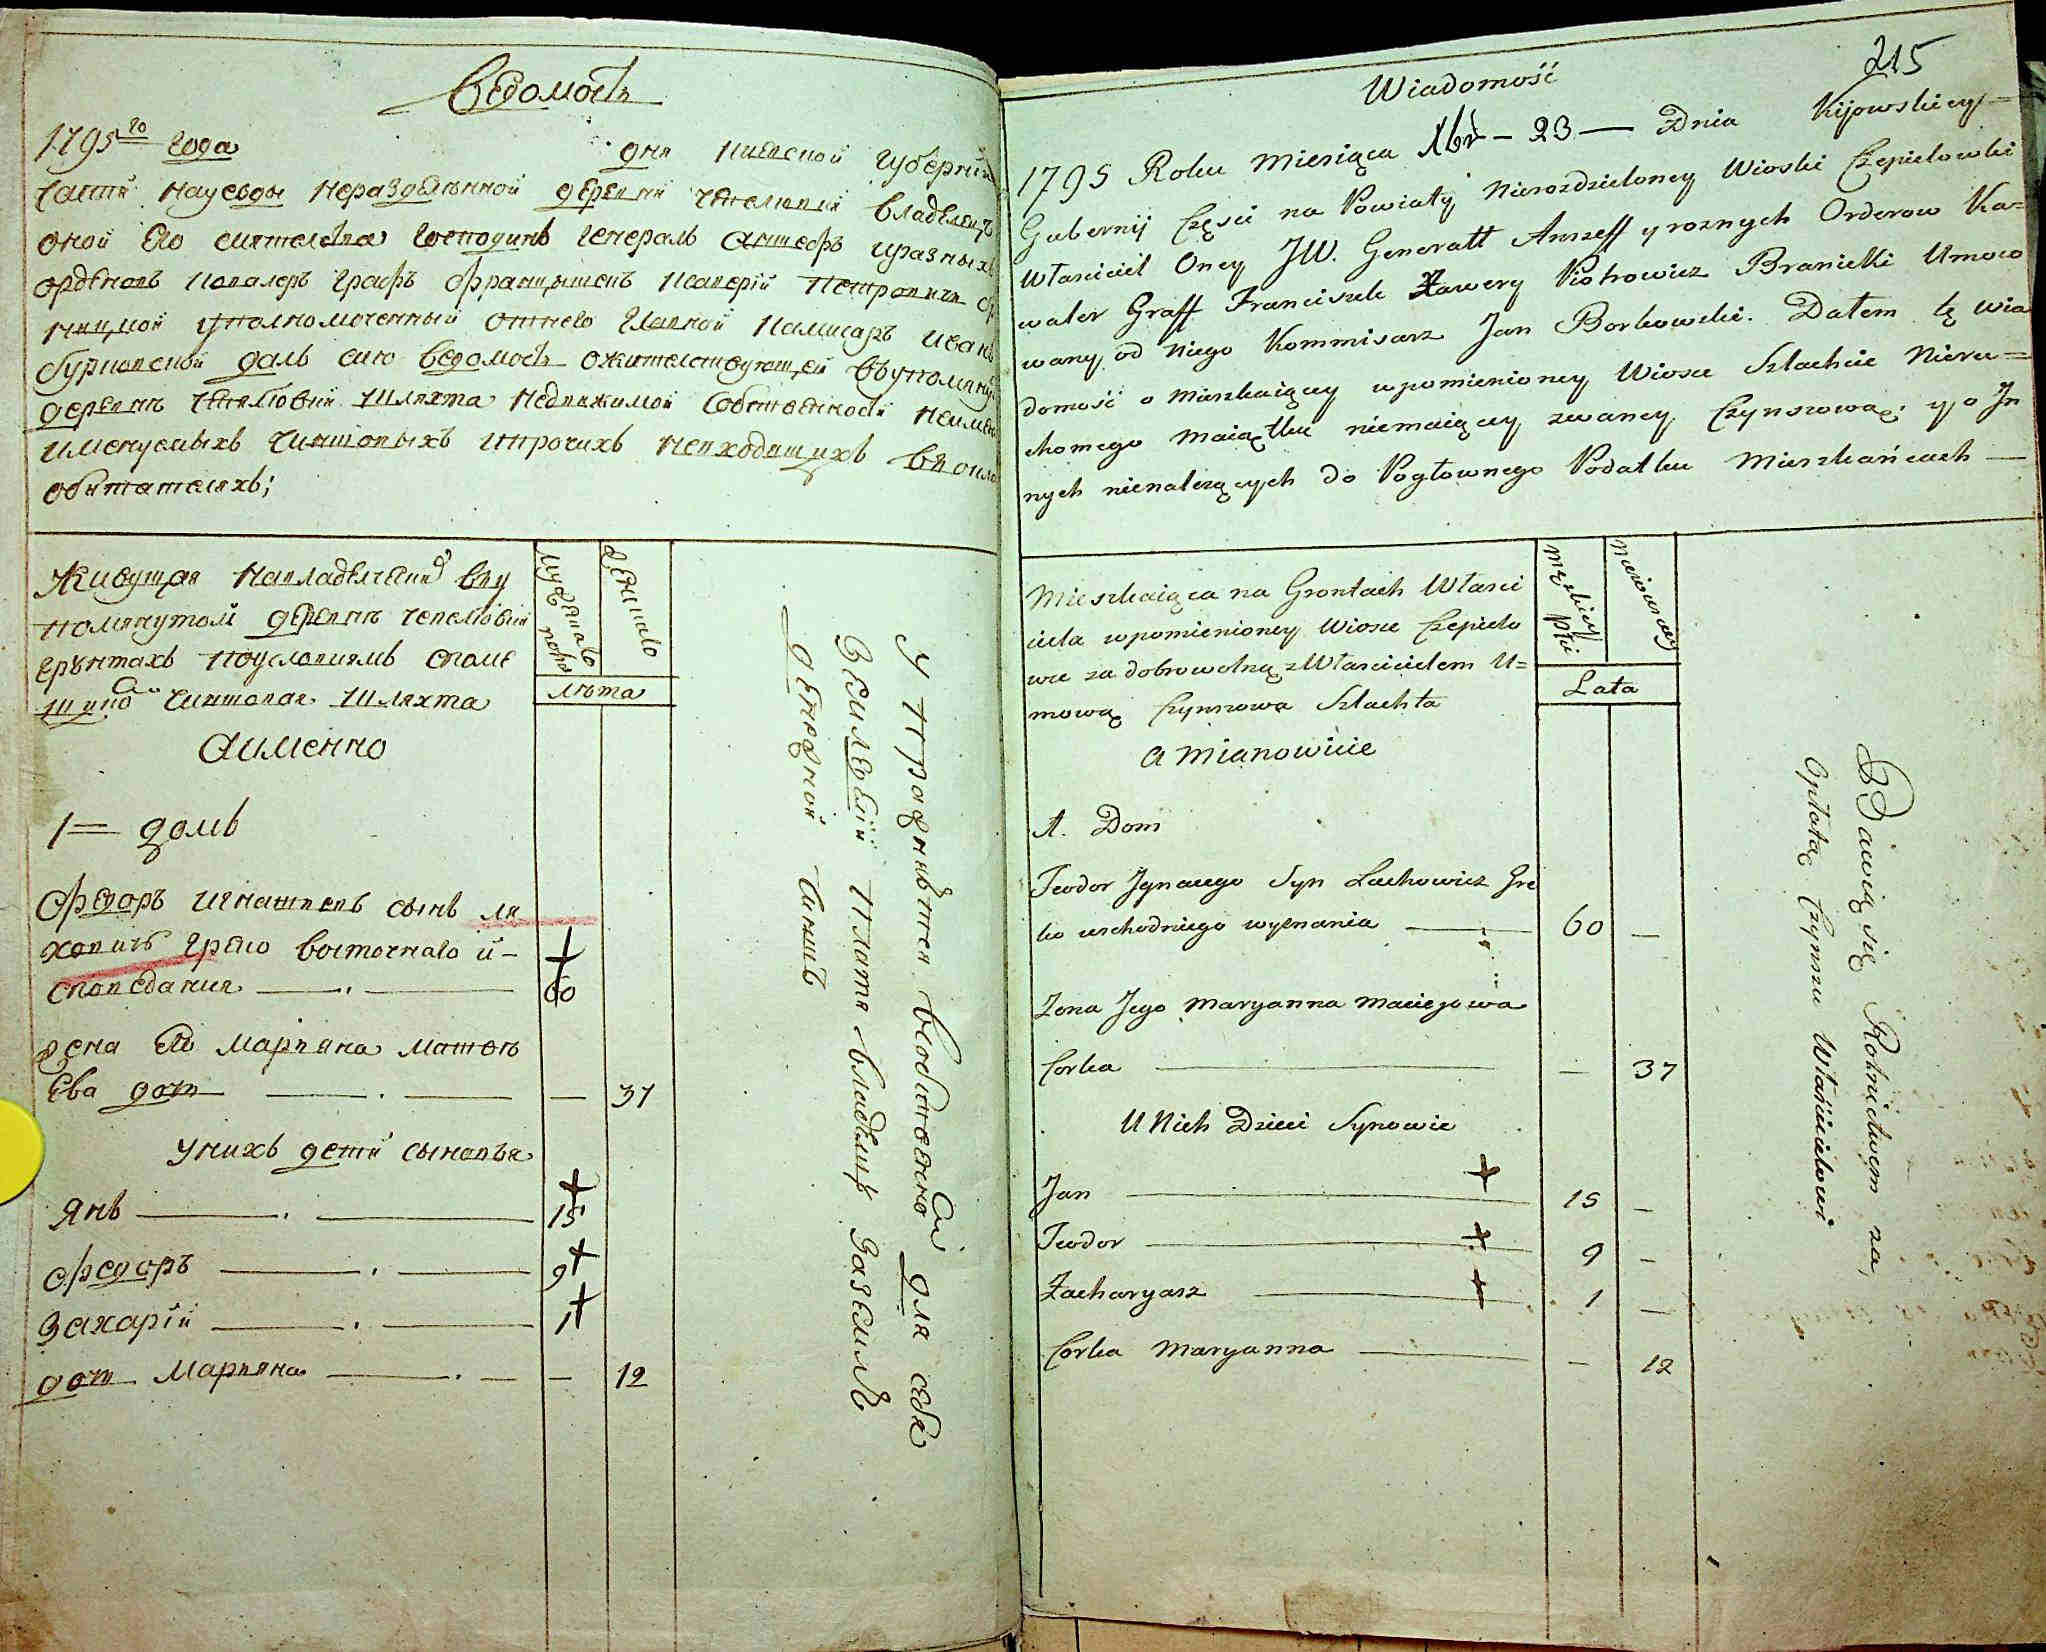 Ведомость
1795го года дня Киевской Губернии
части науезды нераздельнной деревни Чепелювки владелецъ
оной его сиятелства господинъ Генералъ Аншефъ иразныхъ
орденовъ кавалеръ Графъ Францышекъ Ксаверiй Петровичъ
уполномоченный отнего Главной Камисаръ Иванъ
далъ сию ведомость ожителствующей вупомяну
деревнъ Чепелювки Шляхта недвижимой собственности неимею
именуемыхъ чиншовыхъ ипрочихъ невходящихъ вокла
обытателяхъ;
Живущая навладелческий вву
помянутой деревнъ Чепелювки
грунтахъ поусловиямъ спом
чиншовая Шляхта
Аименно
мужескаго полу
женскаго
лѣта
1 домъ
Федоръ Игнатиевъ сынъ Ля
ховичъ греко восточнаго и-
споведания 60
Жена его Марияна Матве
ева дочь — 37
унихъ дети сыновья
Янъ 15
Федоръ 9
Захарiй 1
дочь Марияна — 12
Упражняется всобственно для себя
Земледелiи платя владелцу заземлѣ
денежной чиншъ
215
Wiadomość
1795 Roku Miesiąca Xbr – 23 — Dnia Kijowskiey=
Gubernij Części na Powiaty Nierozdzieloney Wioski Czepielowki
Własciciel Oney JW. Generałł Anszeff y roznych Orderow Ka=
waler Graff Franciszek Xawery Piotrowicz Branicki Umoco
wany od niego Kommisarz Jan Borkowski. Dałem tę wia
domość o mieszkaiącey wpomienioney Wiosce Szlachcie nieru=
chomego maiątku niemaiącey zwaney Czynszową, y o In
nych nienależących do Pogłownego Podatku Mieszkańcach —
Mieszkaiąca na Grontach Własci
ciela wpomienioney Wiosce Czepielo
wce za dobrowolną z Włascicielem U=
mową Czynszowa Szlachta
A Mianowicie
męzkiey płci
niewiescey
Lata
1. Dom
Teodor Jgnacego Syn Lachowicz Gre
ko wschodniego wyznania — 60 —
Zona Jego Maryanna Macieiowa
Corka — — 37
U Nich Dzieci Synowie
Jan — 15 —
Teodor — 9 —
Zacharyasz — 1 —
Corka Maryanna — — 12
Bawią się Rolnictwem za
Opłatą Czynszu Włascicielowi